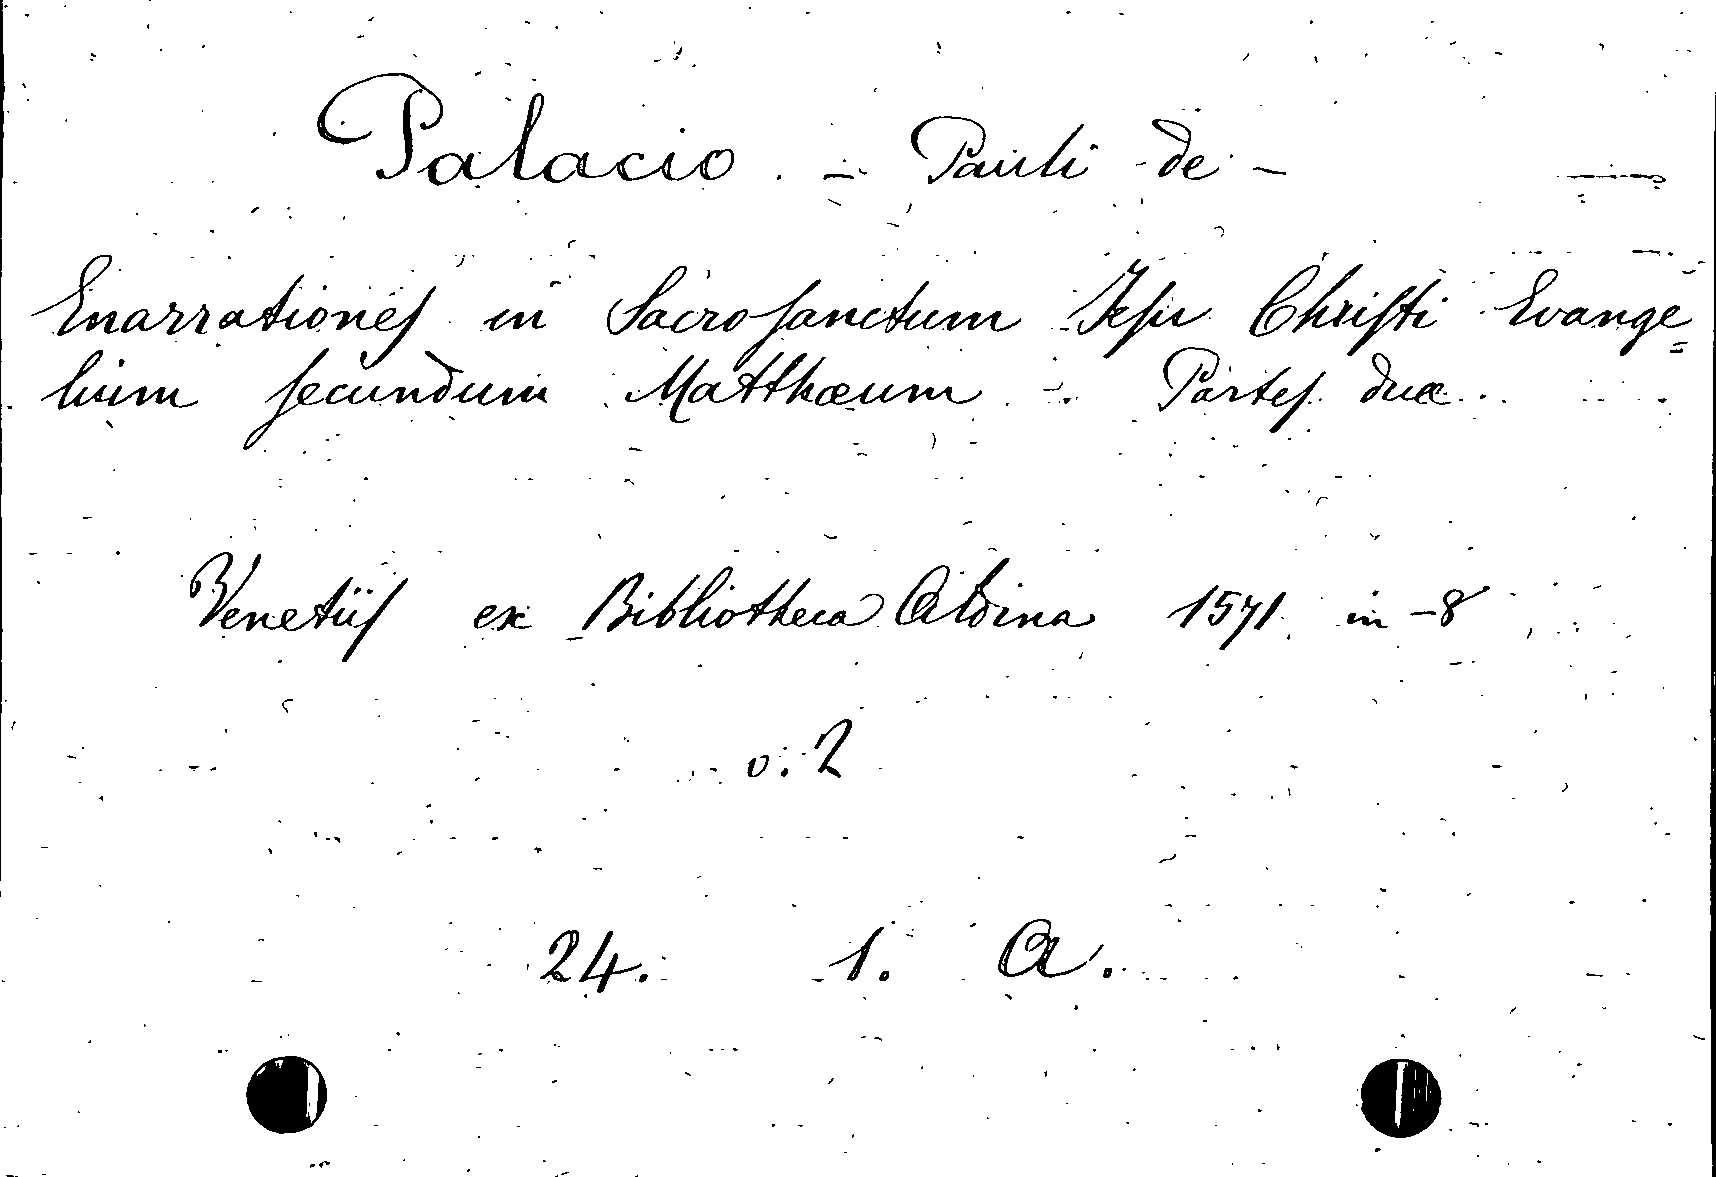 Palacio. - Pauli de -
Enarrationes in Sacrosanctum Jesu Christi Evange=
lium secundum Matthæum - Partes duæ
Venetiis ex Bibliotheca Aldina 1571 in -8
v. 2
24. 1. A.